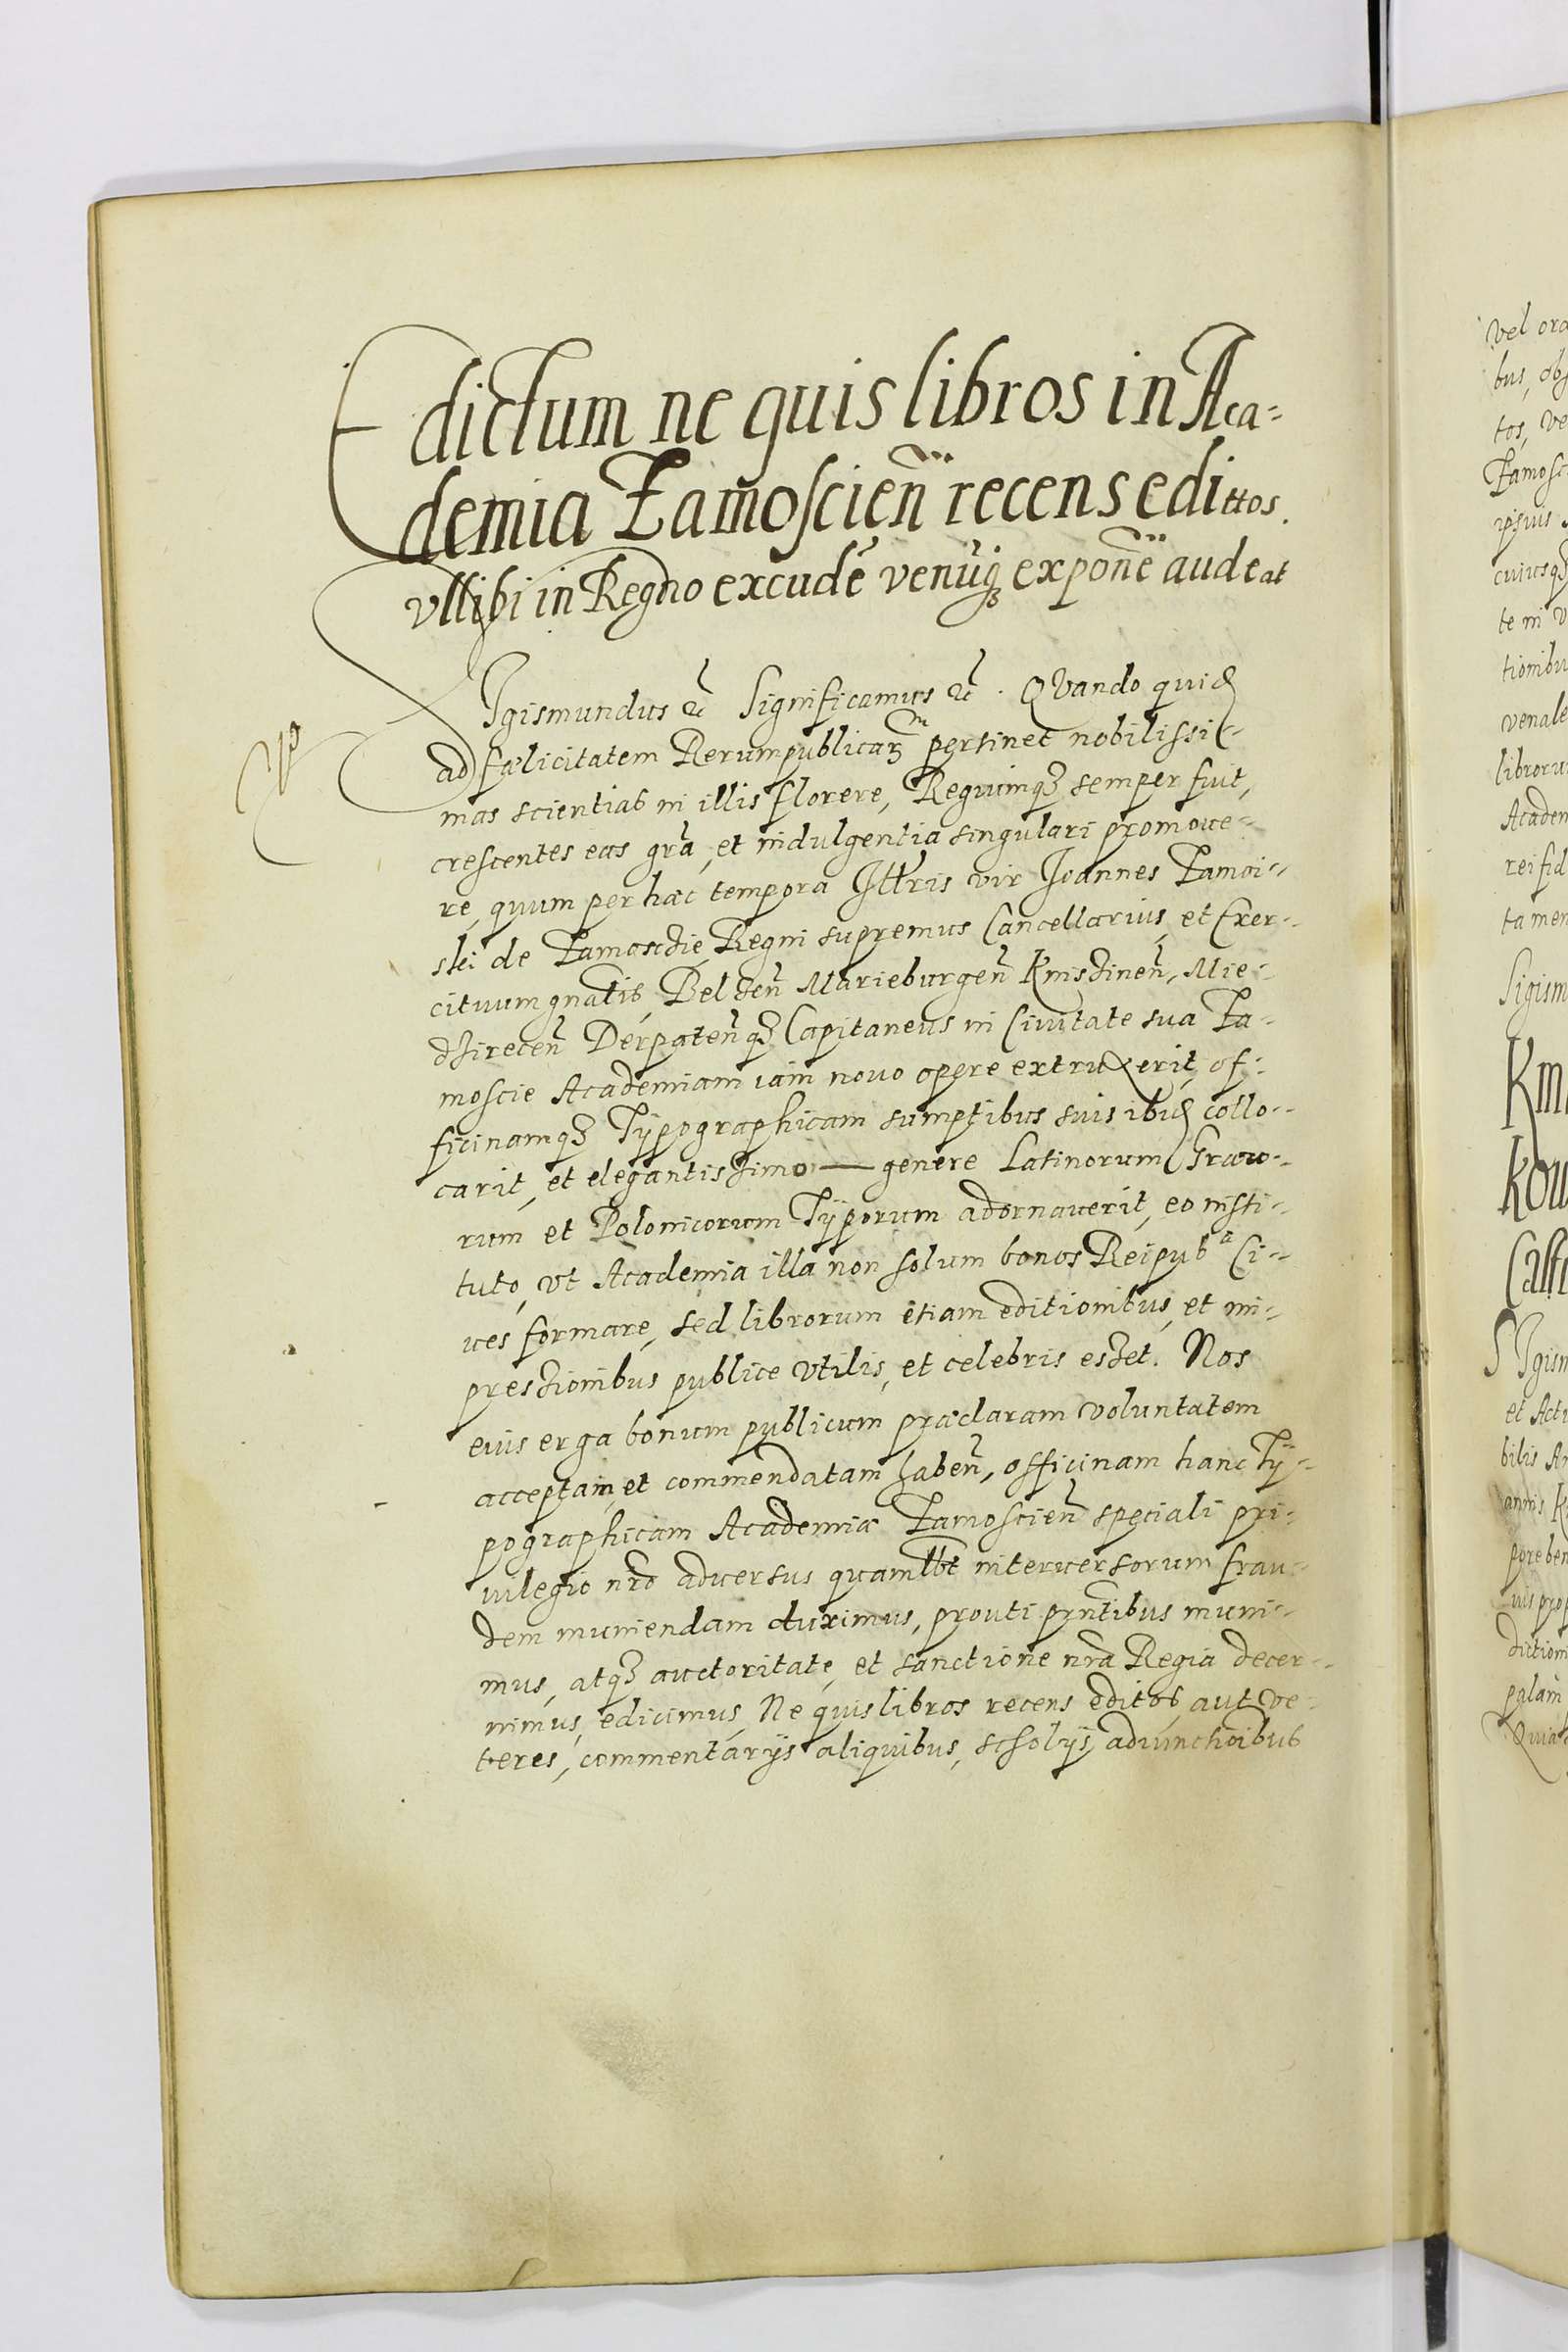 Edictum ne quis libros in Aca-
demia Zamoscień recens edittos
vllibi in Regno excudē venūq3 exponē audeat
SIgismundus &c Significamus &c. QVando quid
ad fælicitatem Rerumpublicar3 pertinet nobilissi-
mas scientias in illis florere, Regiumq3 semper fuit,
crescentes eas grā, et indulgentia singulari promoue-
re, quum per hæc tempora Illris vir Joannes Zamoi-
ski de Zamoscie Regni supremus Cancellarius, et Exer-
cituum gnalis, Belzeń Marieburgeń Knisźineń, Mie-
dzireceń Derpateńq3 Capitaneus in Ciuitate sua Za-
moscie Academiam iam nouo opere extruxerit, of-
ficinamq3 Typographicam sumptibus suis ibid collo-
carit, et elegantissimo — genere Latinorum Græco-
rum et Polonicorum Typorum adornauerit, eo insti-
tuto, vt Academia illa non solum bonos Reipubᵃ Ci-
ues formare, sed librorum etiam editionibus, et im-
pressionibus publice vtilis, et celebris esset. Nos
eius erga bonum publicum præclaram voluntatem
acceptam, et commendatam habeń, officinam hanc Ty-
pographicam Academiæ Zamoscień speciali pri-
uilegio nrō aduersus quamlbt interuersorum frau-
dem muniendam duximus, prouti pntibus muni-
mus, atq3 auctoritate, et sanctione nrā Regia decer-
nimus, edicimus, Ne quis libros recens editos, aut ve-
teres, commentarijs aliquibus, scholijs, adiunctōibus
vel
bus,
tos,
ipsius
te in
tionibu
venale
libroru
Academ
rei fid
tamen
Sigism
Km
Kow
Cast
SIgism
et Act
bilis
dictioni
palam